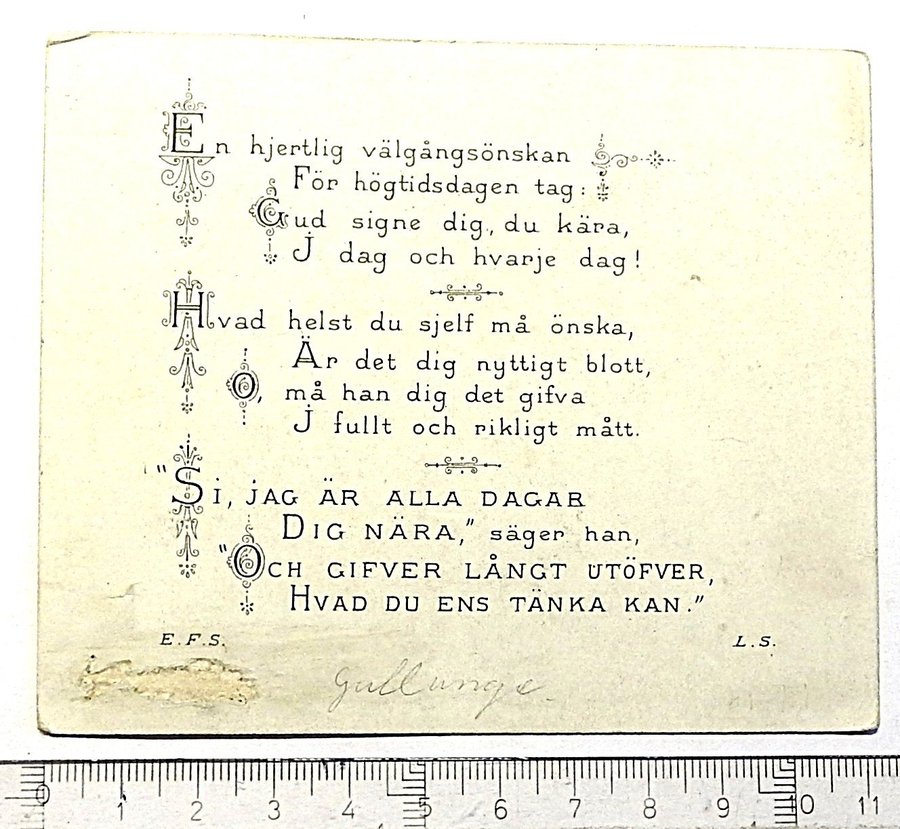 En hjertlig välgångsönskan
För högtidsdagen tag:
Gud signe dig, du kära,
J dag och hvarje dag!
Hvad helst du sjelf må önska,
Är det dig nyttigt blott,
O, må han dig det gifva
J fullt och rikligt mått.
"Si, JAG ÄR ALLA DAGAR
DIG NÄRA," säger han,
"OCH GIFVER LÅNGT UTÖFVER,
HVAD DU ENS TÄNKA KAN."
E.F.S. L.S.
Gullunge
0 1 2 3 4 5 6 7 8 9 10 11